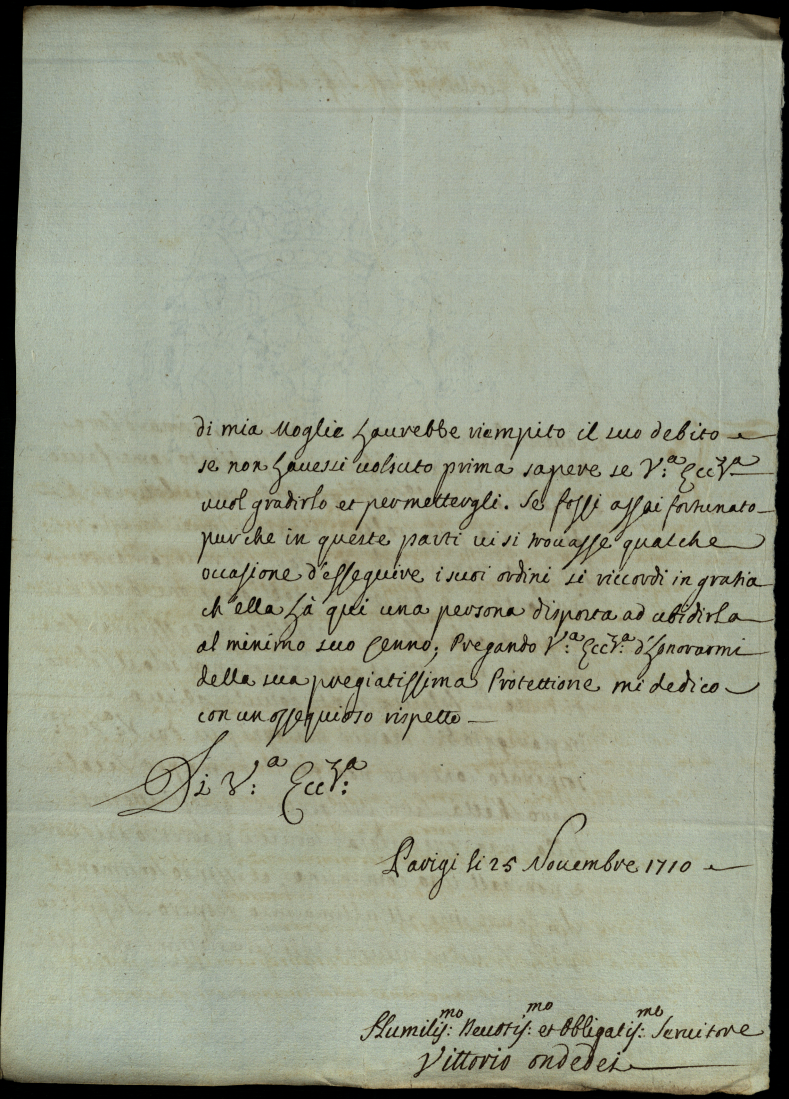 di mia Moglie haurebbe riempito il suo debito
se non hauessi uolsuto prima sapere se V:ª Ecczª
uuol gradirlo et permettergli. Se fossi assai fortunato
pur che in queste parti ui si trouasse qualche
occasione d'esseguire i suoi ordini si riccordi in gratia
ch'ella hà qui una persona disposta ad ubidirla
al minimo suo Cenno; Pregando V:ª Eccz:ª d'honorarmi
della sua pregiatissima Protettione mi dedico
con un ossequioso rispetto
Di V:ª Eccz:ª
Parigi li 25 Nouembre 1710
Humilis:mo Deuotis:mo et Obligatis:mo Seruitore
Vittorio ondedei